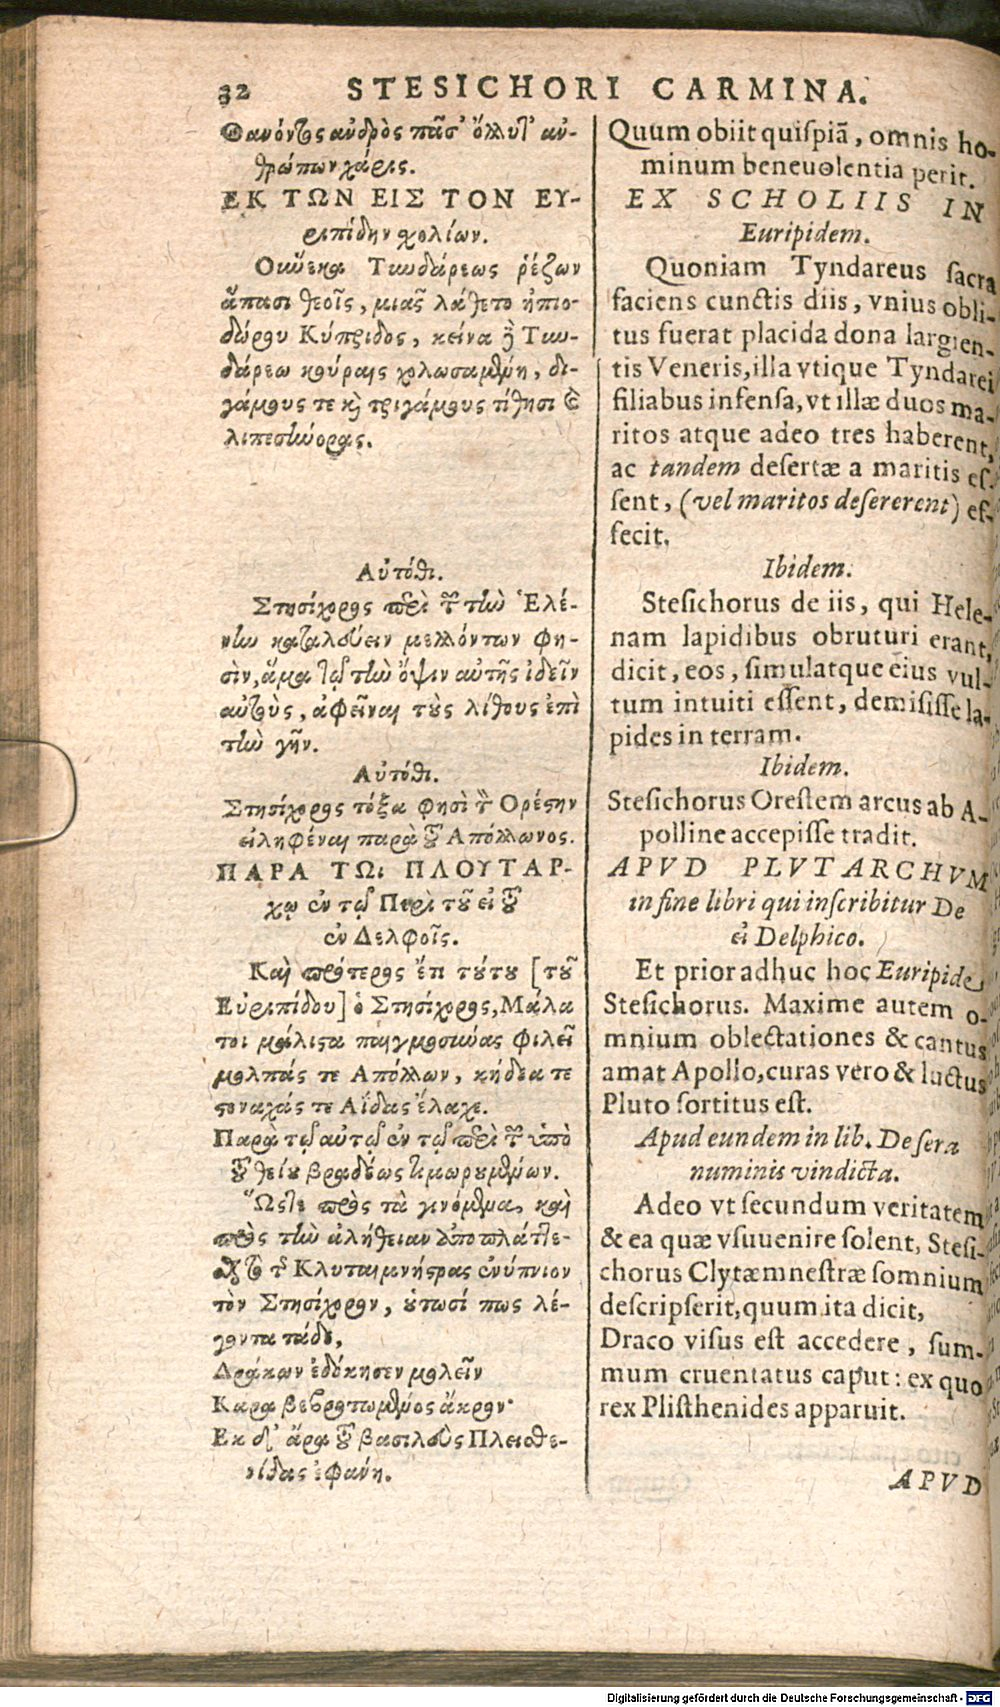 32 STESICHORI CARMINA.
Θανόντος ἀνδρὸς πᾶσ' ὄλλυτ' ἀν-
θρώπων χάρις.
ΕΚ ΤΩΝ ΕΙΣ ΤΟΝ ΕΥ-
ριπίδην σχολίων.
Οὕνεκα Τυνδάρεως ῥέζων
ἅπασι θεοῖς, μιᾶς λάθετο ἠπιο-
δώρου Κύπριδος, κείνα δὲ Τυν-
δάρεω κούραις χολωσαμένη, δι-
γάμους τε καὶ τριγάμους τίθησι καὶ
λιπεσήνορας.
Αὐτόθι.
Στησίχορος περὶ τῶν τὴν Ἑλέ-
νην καταλεύειν μελλόντων φη-
σὶν, ἅμα τῷ τὴν ὄψιν αὐτῆς ἰδεῖν
αὐτοὺς, ἀφεῖναι τοὺς λίθους ἐπὶ
τὴν γῆν.
Αὐτόθι.
Στησίχορος τόξα φησὶ τὸν Ορέστην
εἰληφέναι παρὰ τοῦ Απόλλωνος.
ΠΑΡΑ ΤΩι ΠΛΟΥΤΑΡ-
χῳ ἐν τῷ Περὶ τοῦ εἰ τοῦ
ἐν Δελφοῖς.
Καὶ πρότερος ἔτι τούτου [τοῦ
Εὐριπίδου] ὁ Στησίχορος, Μάλα
τοι μάλιστα παιγμοσύνας φιλεῖ
μολπάς τε Απόλλων, κήδεα τε
στοναχάς τε Αΐδας ἔλαχε.
Παρὰ τῷ αὐτῷ ἐν τῷ περὶ τῶν ὑπὸ
τοῦ θείου βραδέως τιμωρουμένων.
Ὥστε πρὸς τὰ γινόμενα, καὶ
πρὸς τὴν ἀλήθειαν ἀποπλάττε-
σθαι τὸ τῆς Κλυταιμνήστρας ἐνύπνιον
τὸν Στησίχορον, οὑτωσί πως λέ-
γοντα τάδε,
Δράκων ἐδόκησεν μολεῖν
Κάρα βεβροτωμένος ἄκρον·
Εκ δ' ἄρα τοῦ βασιλεὺς Πλεισθε-
νίδας ἐφάνη.
Quum obiit quiſpiā, omnis ho-
minum beneuolentia perit.
EX SCHOLIIS IN
Euripidem.
Quoniam Tyndareus ſacra
faciens cunctis diis, vnius obli-
tus fuerat placida dona largien-
tis Veneris, illa vtique Tyndarei
filiabus infenſa, vt illæ duos ma-
ritos atque adeo tres haberent,
ac tandem deſertæ a maritis eſ-
ſent, (vel maritos deſererent) ef-
fecit.
Ibidem.
Steſichorus de iis, qui Hele-
nam lapidibus obruturi erant,
dicit, eos, ſimulatque eius vul-
tum intuiti eſſent, demiſiſſe la-
pides in terram.
Ibidem.
Steſichorus Oreſtem arcus ab A-
polline accepiſſe tradit.
APVD PLVTARCHVM
in fine libri qui inſcribitur De
εἰ Delphico.
Et prior adhuc hoc Euripide
Steſichorus. Maxime autem o-
mnium oblectationes & cantus
amat Apollo, curas vero & luctus
Pluto ſortitus eſt.
Apud eundem in lib. De ſera
numinis vindicta.
Adeo vt ſecundum veritatem
& ea quæ vſuuenire ſolent, Steſi-
chorus Clytæmneſtræ ſomnium
deſcripſerit, quum ita dicit,
Draco viſus eſt accedere, ſum-
mum cruentatus caput: ex quo
rex Pliſthenides apparuit.
APVD
Digitalisierung gefördert durch die Deutsche Forschungsgemeinschaft - DFG